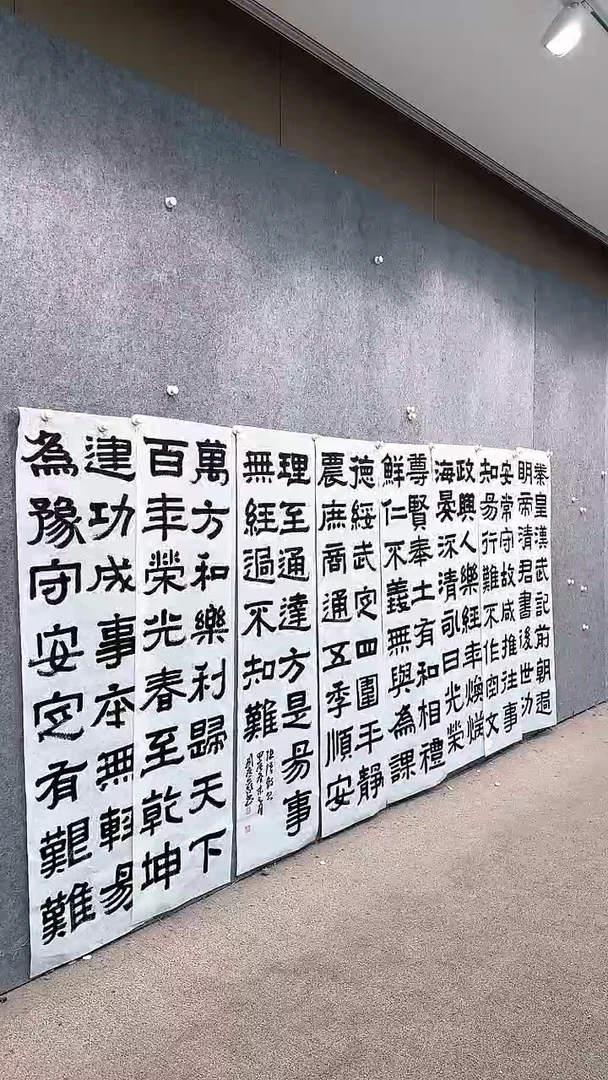 秦皇漢武記前朝過
明帝清君書後世功
安常守故咸推往事
知易行難不作空文
政興人樂經年煥
海晏深清永日光榮
尊賢奉士有和相禮
鮮仁不義無與為課
德綏武定四圍平靜
農庶商通五季順安
理至通達方是易事
無經過不知難
萬方和樂利歸天下
百年榮光春至乾坤
建功成事本無輕易
為豫守安定有艱難